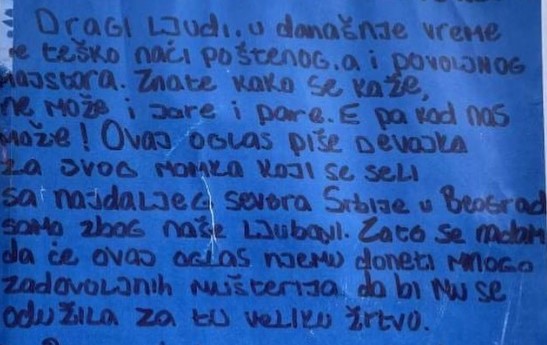 Dragi ljudi, u današnje vreme
je teško naći poštenog, a i povoljnog
majstora. Znate kako se kaže,
ne može i jare i pare. E pa kod nas
može! Ovaj oglas piše devojka
za svog momka koji se seli
sa najdaljeg severa Srbije u Beograd
samo zbog naše ljubavi. Zato se nadam
da će ovaj oglas njemu doneti mnogo
zadovoljnih mušterija da bi mu se
odužila za tu veliku žrtvo.